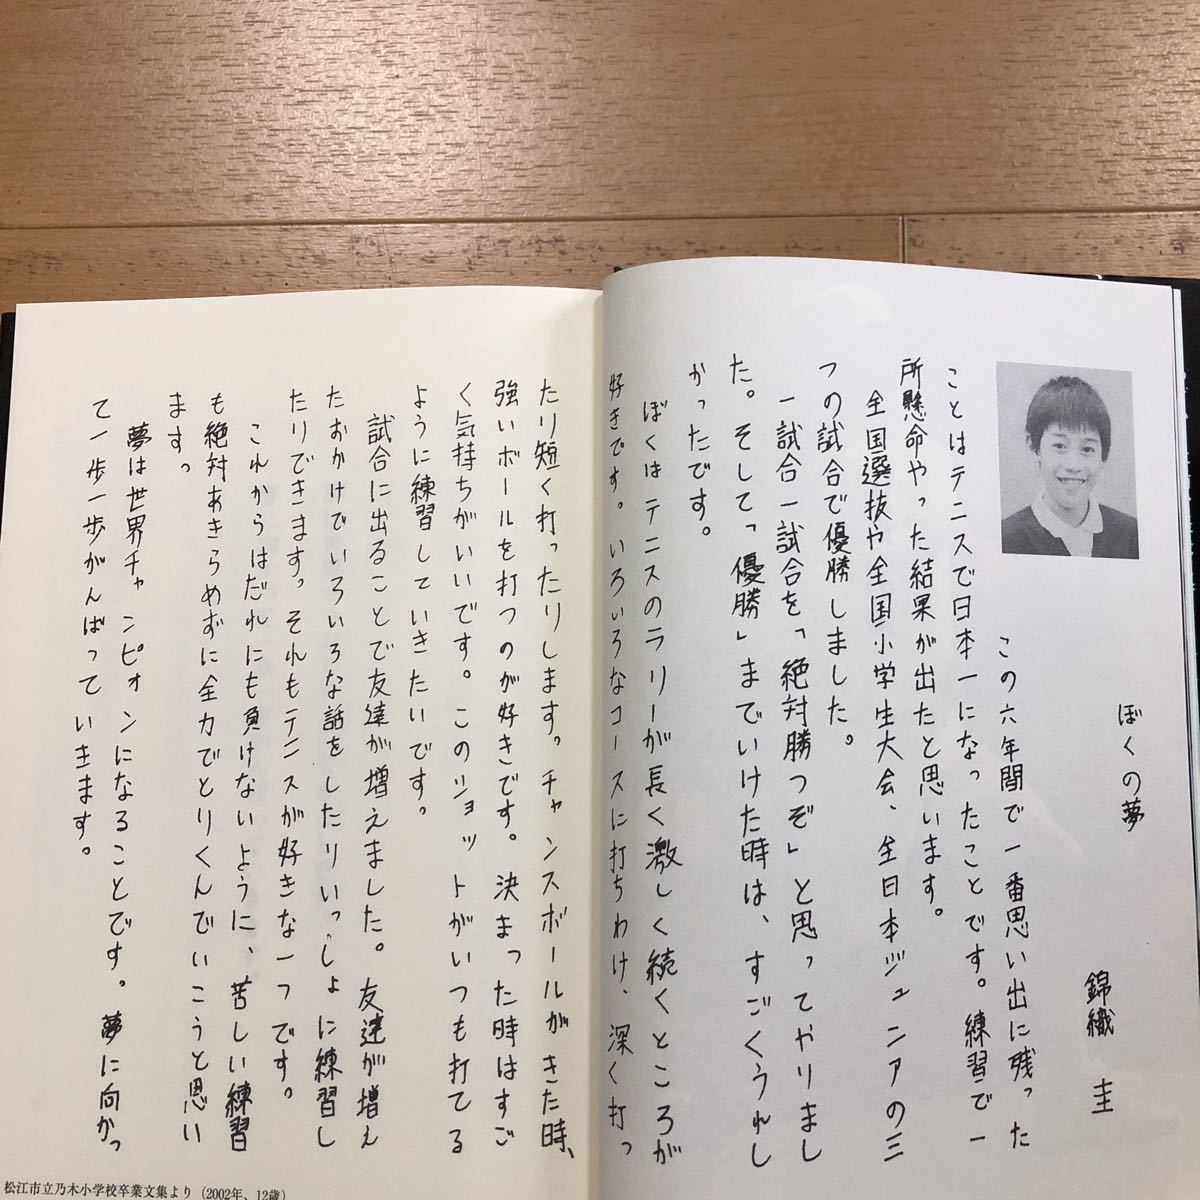 ぼくの夢
錦織 圭
この六年間で一番思い出に残った
ことはテニスで日本一になったことです。練習で一
所懸命やった結果が出たと思います。
全国選抜や全国小学生大会、全日本ジュニアの三
つの試合で優勝しました。
一試合一試合を「絶対勝つぞ」と思ってやりまし
た。そして「優勝」までいけた時は、すごくうれし
かったです。
ぼくはテニスのラリーが長く激しく続くところが
好きです。いろいろなコースに打ちわけ、深く打っ
たり短く打ったりします。チャンスボールがきた時、
強いボールを打つのが好きです。決まった時はすご
く気持ちがいいです。このショットがいつも打てる
ように練習していきたいです。
試合に出ることで友達が増えました。友達が増え
たおかげでいろいろな話をしたりいっしょに練習し
たりできます。それもテニスが好きな一つです。
これからはだれにも負けないように、苦しい練習
も絶対あきらめずに全力でとりくんでいこうと思い
ます。
夢は世界チャンピオンになることです。夢に向かっ
て一歩一歩がんばっていきます。
松江市立乃木小学校卒業文集より（2002年、12歳）